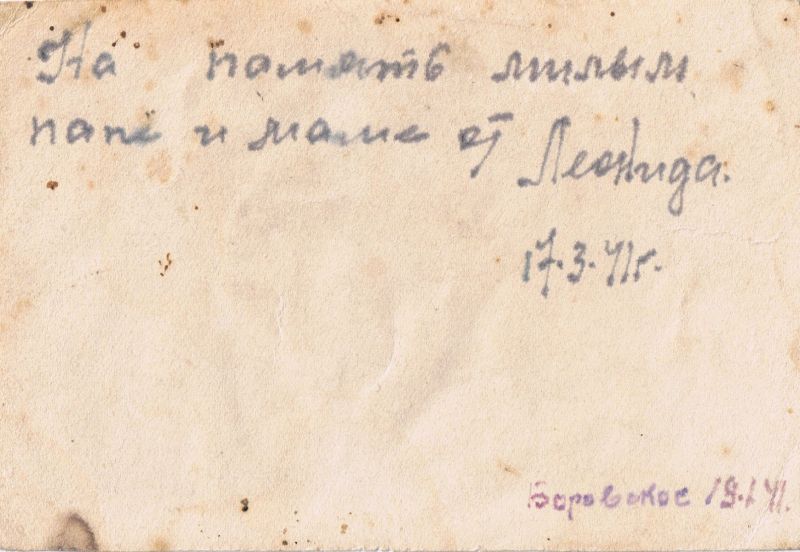 На память милым
папе и маме от Леонида.
17.3.41г.
Боровское 19.1.41.